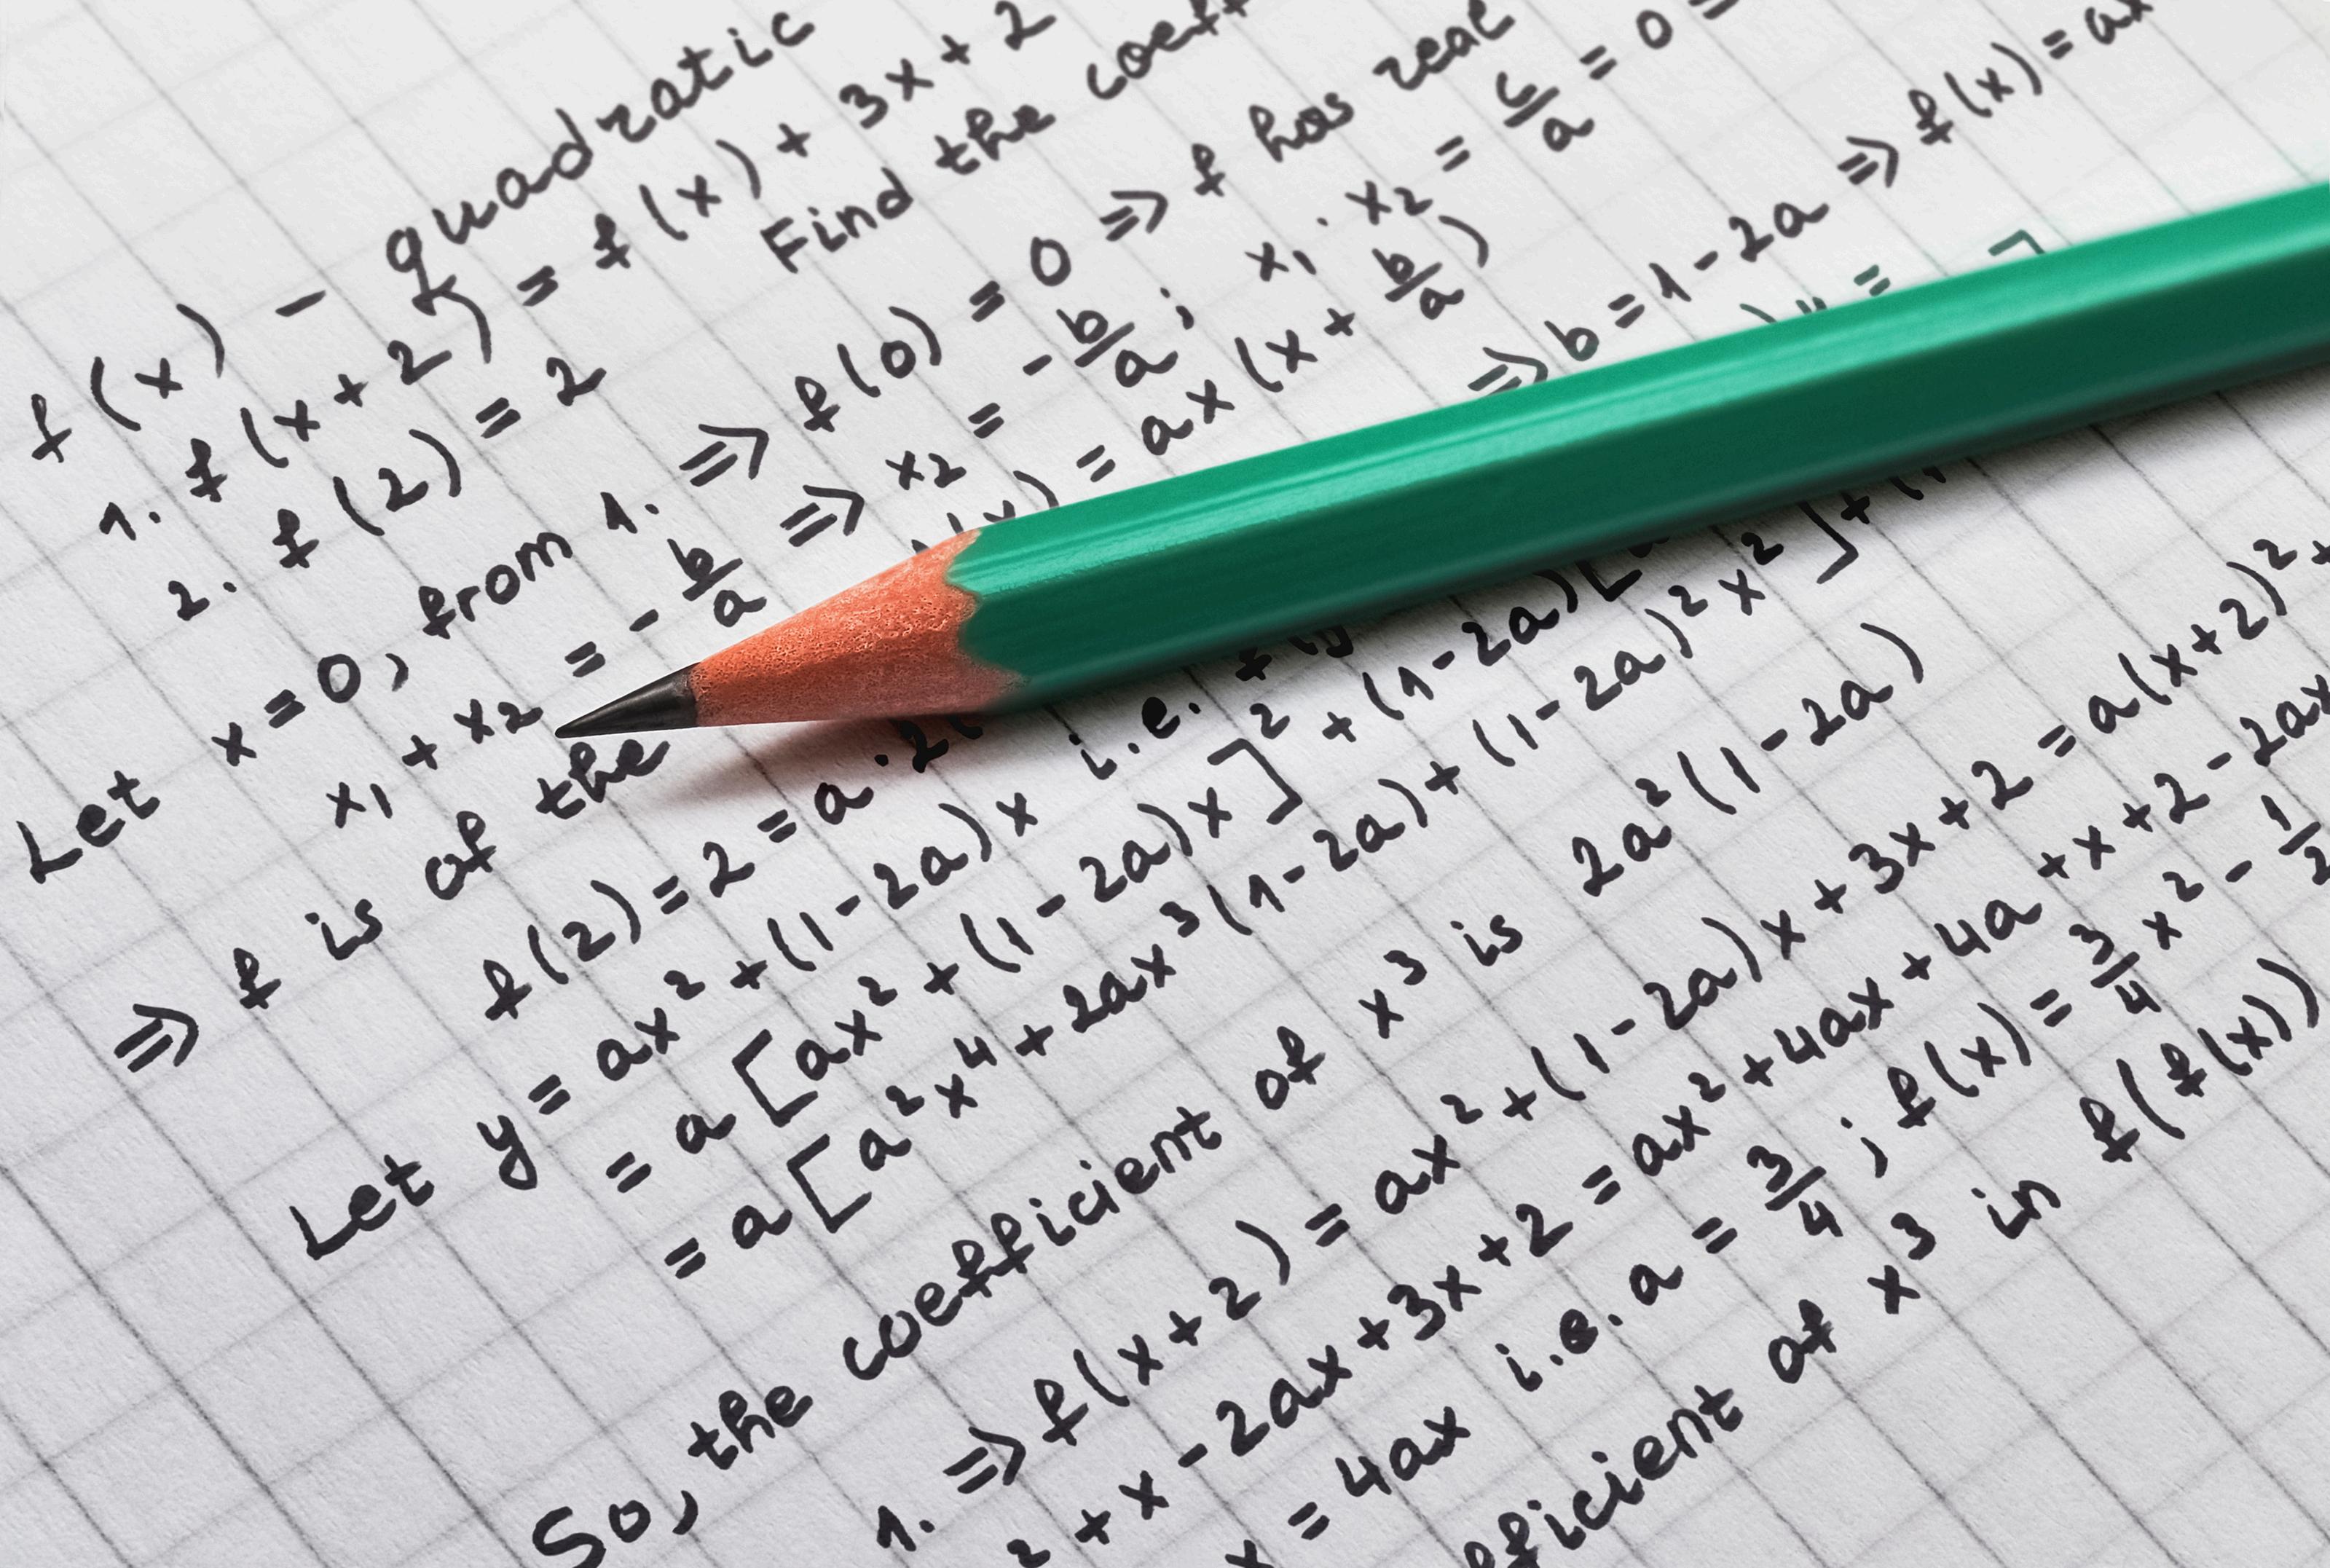 f(x) - quadratic
1. f(x+2) = f(x) + 3x + 2
2. f(2) = 2 Find the
Let x=0, from 1. => f(0) = 0 => f has real
x₁ + x₂ = - b/a => x₂ = - b/a ; x₁ · x₂ = c/a = 0 =
=> f is of the (x) = ax(x + b/a)
f(2) = 2 = a·2 => b = 1-2a => f(x) = ax
Let y = ax² + (1-2a)x i.e. y =
= a[ax² + (1-2a)x]² + (1-2a)[
= a[a²x⁴ + 2ax³(1-2a) + (1-2a)²x²] + (1
So, the coefficient of x³ is 2a²(1-2a)
1. => f(x+2) = ax² + (1-2a)x + 3x + 2 = a(x+2)² +
² + x - 2ax + 3x + 2 = ax² + 4ax + 4a + x + 2 - 2ax
x = 4ax i.e. a = 3/4 ; f(x) = 3/4 x² - 1/2
efficient of x³ in f(f(x))